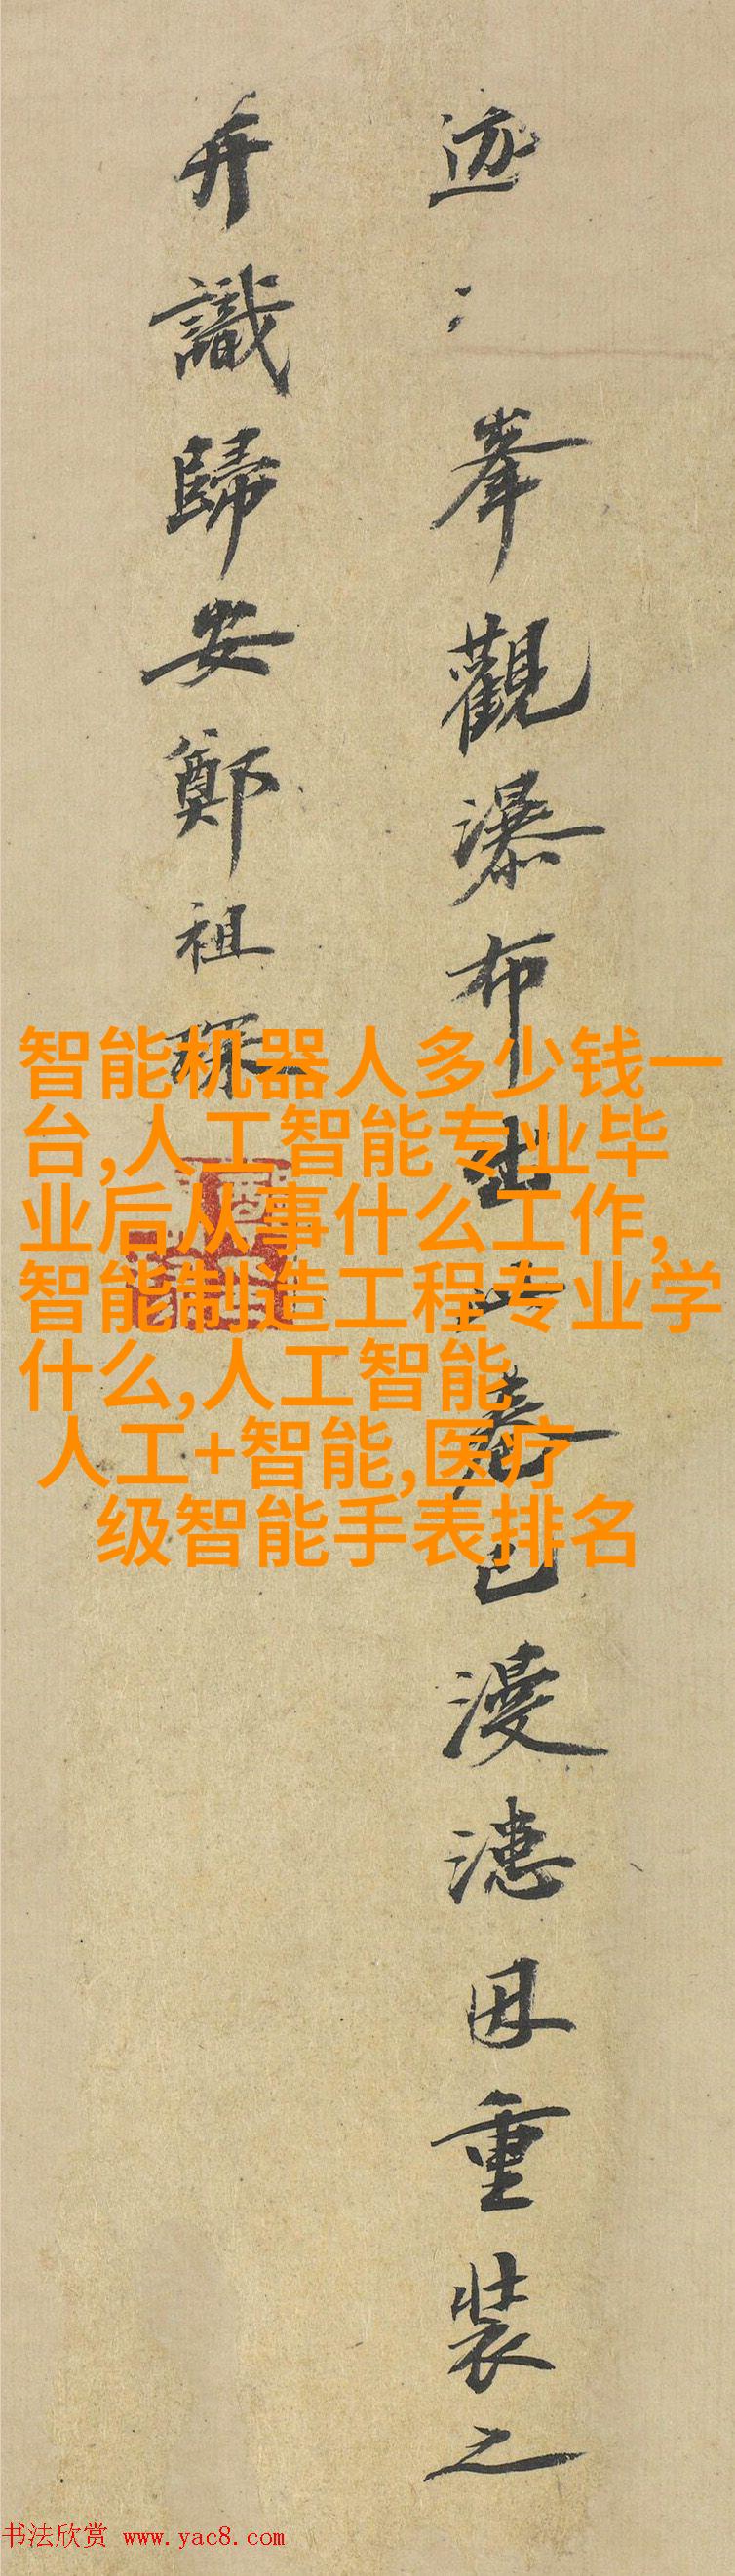 迹峯觀瀑布卷已漫漶因重装之
弁識歸安鄭祖琛
智能机器人多少钱一
台,人工智能专业毕
业后从事什么工作,
智能制造工程专业学
什么,人工智能
人工+智能,医疗
级智能手表排名
书法欣赏 www.yac8.com